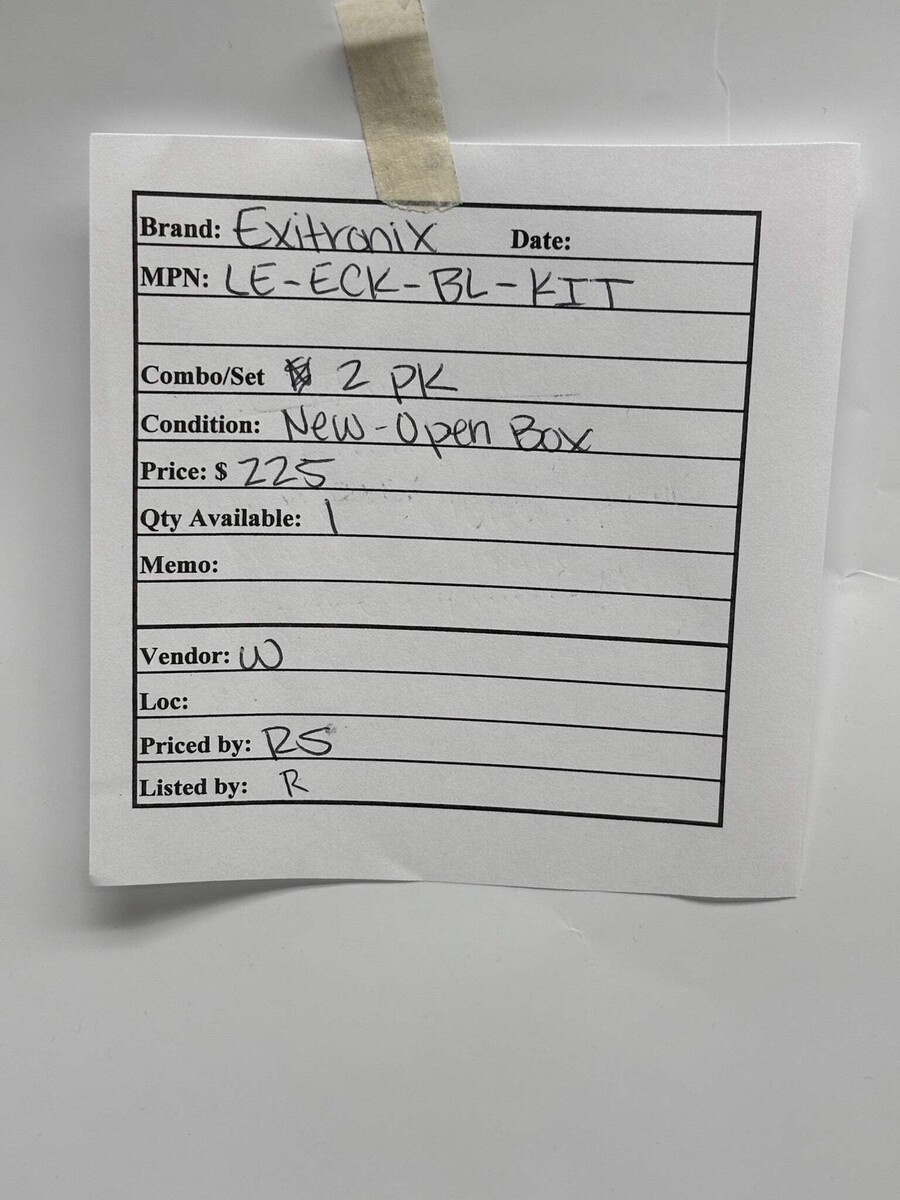 Brand: Exitronix Date:
MPN: LE-ECK-BL-KIT
Combo/Set 2 PK
Condition: New-Open Box
Price: $ 225
Qty Available: 1
Memo:
Vendor: W
Loc:
Priced by: RS
Listed by: R